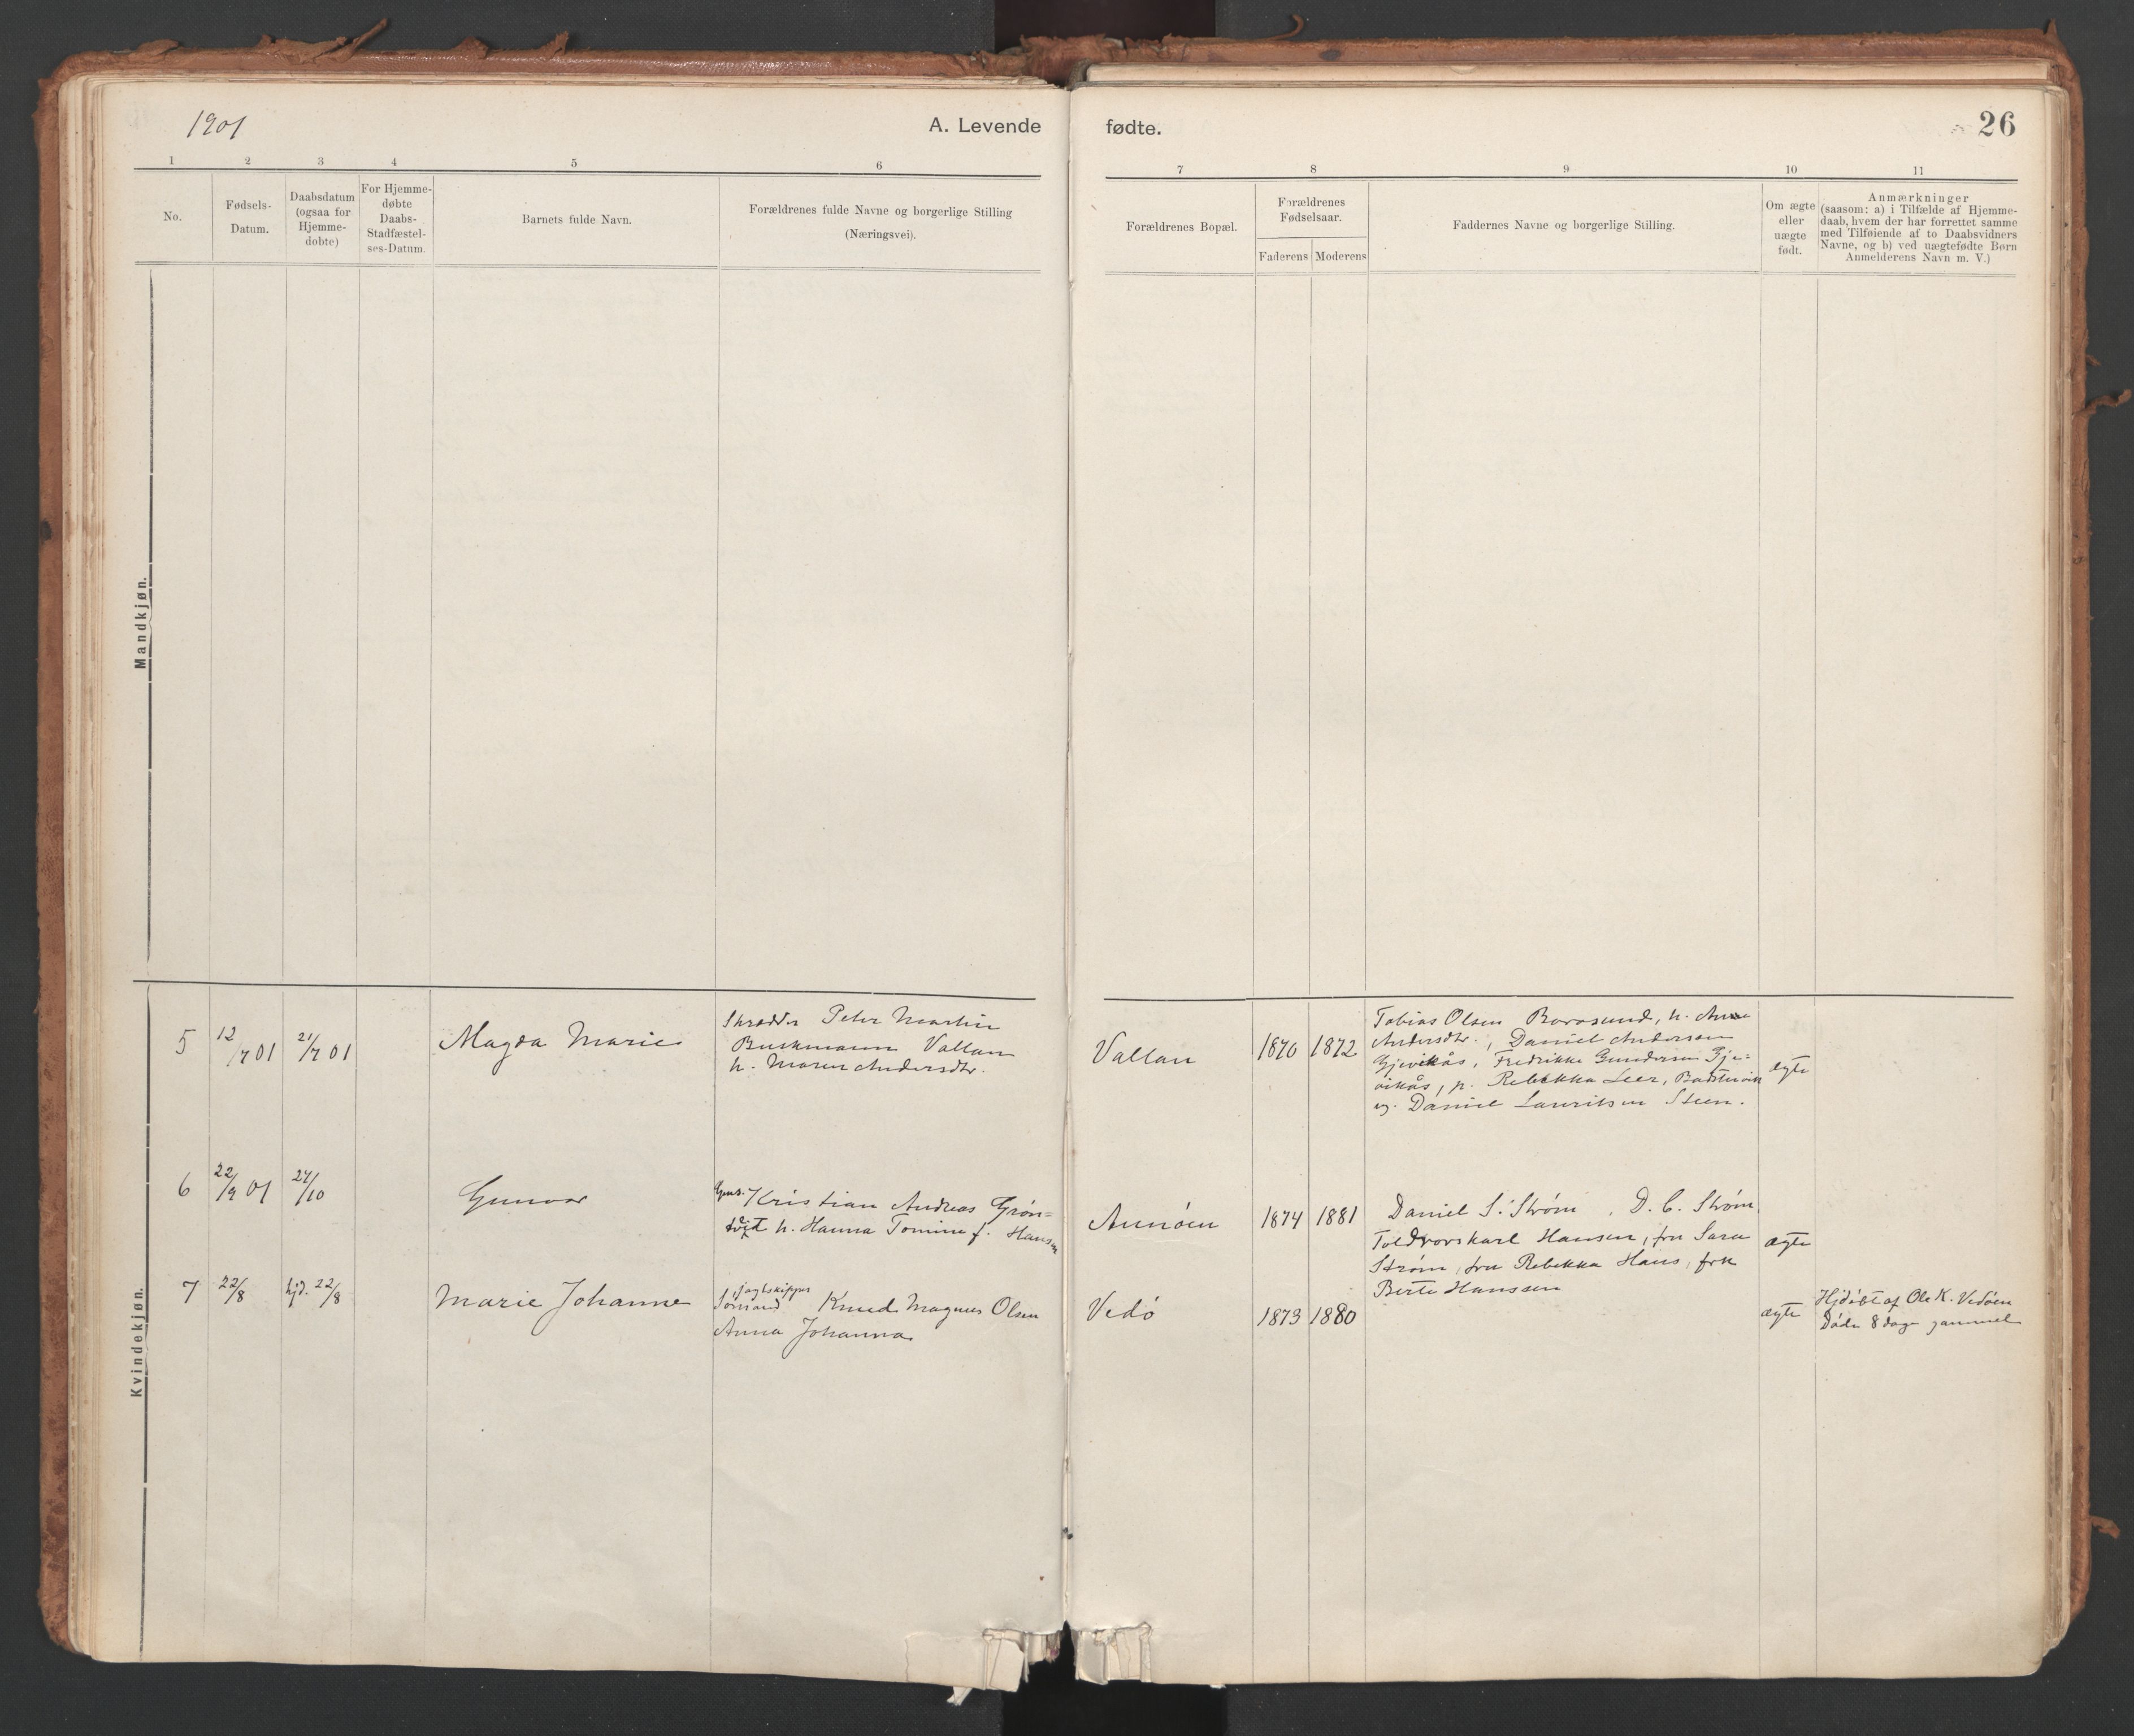 1901
A. Levende fødte.
26
1 2 3 4 5 6 7 8 9 10 11
No.
Fødsels-
Datum.
Daabsdatum
(ogsaa for
Hjemme-
døbte)
For Hjemme-
døbte
Daabs-
Stadfæstel-
ses-Datum.
Barnets fulde Navn.
Forældrenes fulde Navne og borgerlige Stilling
(Næringsvei).
Forældrenes Bopæl.
Forældrenes
Fødselsaar.
Faderens Moderens
Faddernes Navne og borgerlige Stilling.
Om ægte
eller
uægte
født.
Anmærkninger
(saasom: a) i Tilfælde af Hjemme-
daab, hvem der har forrettet samme
med Tilføiende af to Daabsvidners
Navne, og b) ved uægtefødte Børn
Anmelderens Navn m. V.)
Mandkjøn.
Kvindekjøn.
5
12/7 01
21/7 01
Magda Marie
Skrædder Peter Martin
Buskmann Vallan
h. Maren Andersdtr.
Vallan
1870 1872
Tobias Olsen Borøsund, h. Anne
Andersdtr., Daniel Andersen
Gjevikås, Fredrikke Gundersen Gje-
vikås, p. Rebekka Leer,
og. Daniel Lauritsen Steen.
ægte
6
22/9 01
27/10
Gunvor
Kristian Andreas Grøn=
h. Hanna Tomine f. Hansen
1874 1881
Daniel S. Strøm, D. C. Strøm
Toldrorskarl Hansen, fru Sara
Strøm, fru Rebekka Hans, frk
Berte Hanssen
ægte
7
22/8
hjd. 22/8
Marie Johanne
Jagtskipper
Sømand Knud Magnus Olsen
Anna Johanna
Vedö
1873 1880
ægte
Hjdöbt af Ole K. Vedöen
Döde 8 dage gammel